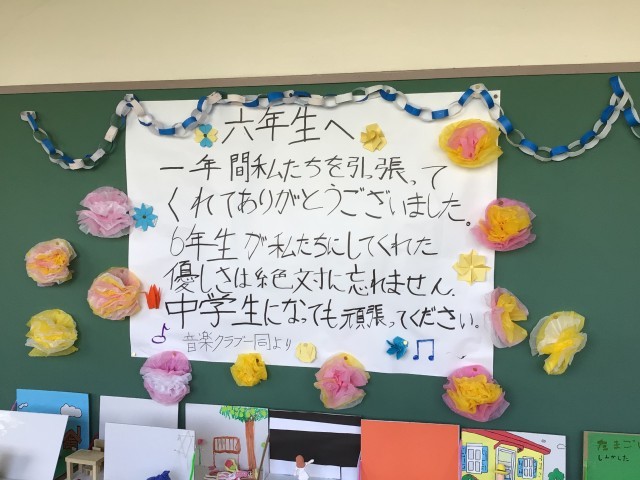 六年生へ
一年間私たちを引っ張って
くれてありがとうございました。
6年生が私たちにしてくれた
優しさは絶対に忘れません。
中学生になっても頑張ってください。
音楽クラブ一同より